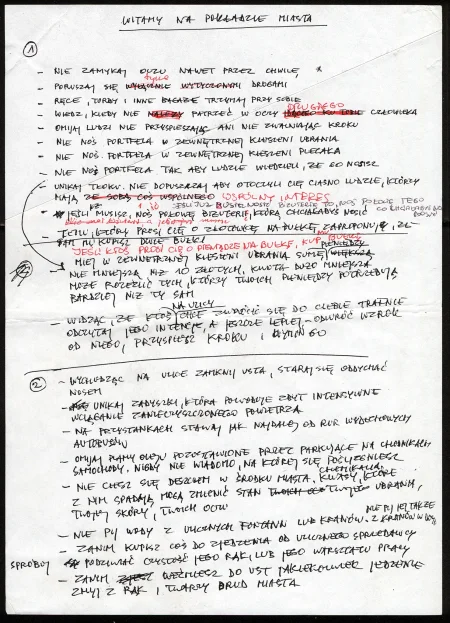 WITAMY NA POKŁADZIE MIASTA
1
- NIE ZAMYKAJ OCZU NAWET PRZEZ CHWILĘ,
tylko
- PORUSZAJ SIĘ WYŁĄCZNIE WYTYCZONYMI DROGAMI
- RĘCE, TORBY I INNE BAGAŻE TRZYMAJ PRZY SOBIE
DRUGIEGO
- WIEDZ, KIEDY NIE NALEŻY PATRZEĆ W OCZY CZŁOWIEKA
- OMIJAJ LUDZI NIE PRZYSPIESZAJĄC ANI NIE ZWALNIAJĄC KROKU
- NIE NOŚ PORTFELA W ZEWNĘTRZNEJ KIESZENI UBRANIA
- NIE NOŚ PORTFELA W ZEWNĘTRZNEJ KIESZENI PLECAKA
- NIE NOŚ PORTFELA TAK ABY LUDZIE WIEDZIELI, ŻE GO NOSISZ
- UNIKAJ TŁOKU. NIE DOPUSZCZAJ ABY OTOCZYLI CIĘ CIASNO LUDZIE, KTÓRZY
MAJĄ ZE SOBĄ COŚ WSPÓLNEGO WSPÓLNY INTERES
JEŚLI MUSISZ, NOŚ POŁOWĘ BIŻUTERII, KTÓRĄ CHCIAŁABYŚ NOSIĆ
TEMU, KTÓRY PROSI CIĘ O ZŁOTÓWKĘ NA BUŁKĘ, ZAPROPONUJ, ŻE
SAM MU KUPISZ DWIE BUŁKI
JEŚLI KTOŚ PROSI CIĘ O PIENIĄDZE NA BUŁKĘ, KUP MU BUŁKĘ
PIENIĘDZY
MIEJ W ZEWNĘTRZNEJ KIESZENI UBRANIA SUMĘ WIĘKSZĄ
NIE MNIEJSZĄ NIŻ 10 ZŁOTYCH, KWOTA DUŻO MNIEJSZA
MOŻE ROZEŹLIĆ TYCH, KTÓRZY TWOICH PIENIĘDZY POTRZEBUJĄ
BARDZIEJ NIŻ TY SAM
NA ULICY
- WIDZĄC, ŻE KTOŚ CHCE ZWRÓCIĆ SIĘ DO CIEBIE TRAFNIE
ODCZYTAJ JEGO INTENCJE, A JESZCZE LEPIEJ - ODWRÓĆ WZROK
OD NIEGO, PRZYSPIESZ KROKU I
2
- WYCHODZĄC NA ULICĘ ZAMKNIJ USTA, STARAJ SIĘ ODDYCHAĆ
NOSEM
- UNIKAJ ZADYSZKI, KTÓRA POWODUJE ZBYT INTENSYWNE
WCIĄGANIE ZANIECZYSZCZONEGO POWIETRZA
- NA PRZYSTANKACH STAWAJ JAK NAJDALEJ OD RUR WYDECHOWYCH
AUTOBUSÓW
- OMIJAJ PLAMY OLEJU POZOSTAWIONE PRZEZ PARKUJĄCE NA CHODNIKACH
SAMOCHODY, NIGDY NIE WIADOMO, NA KTÓREJ SIĘ POŚLIZGNIESZ
CHEMIKALIA,
- NIE CIESZ SIĘ DESZCZEM W ŚRODKU MIASTA, KWASY, KTÓRE
Z NIM SPADAJĄ MOGĄ ZMIENIĆ STAN TWOJEGO UBRANIA,
TWOJEJ SKÓRY, TWOICH OCZU
NIE PIJ JEJ TAKŻE
- NIE PIJ WODY Z ULICZNYCH FONTANN LUB KRANÓW. Z KRANÓW W
- ZANIM KUPISZ COŚ DO ZJEDZENIA OD ULICZNEGO SPRZEDAWCY
SPRÓBUJ PODZIWIAĆ CZYSTOŚĆ JEGO RĄK LUB JEGO WARSZTATU PRACY
- ZANIM WEŹMIESZ DO UST JAKIEKOLWIEK JEDZENIE
ZMYJ Z RĄK I TWARZY BRUD MIASTA